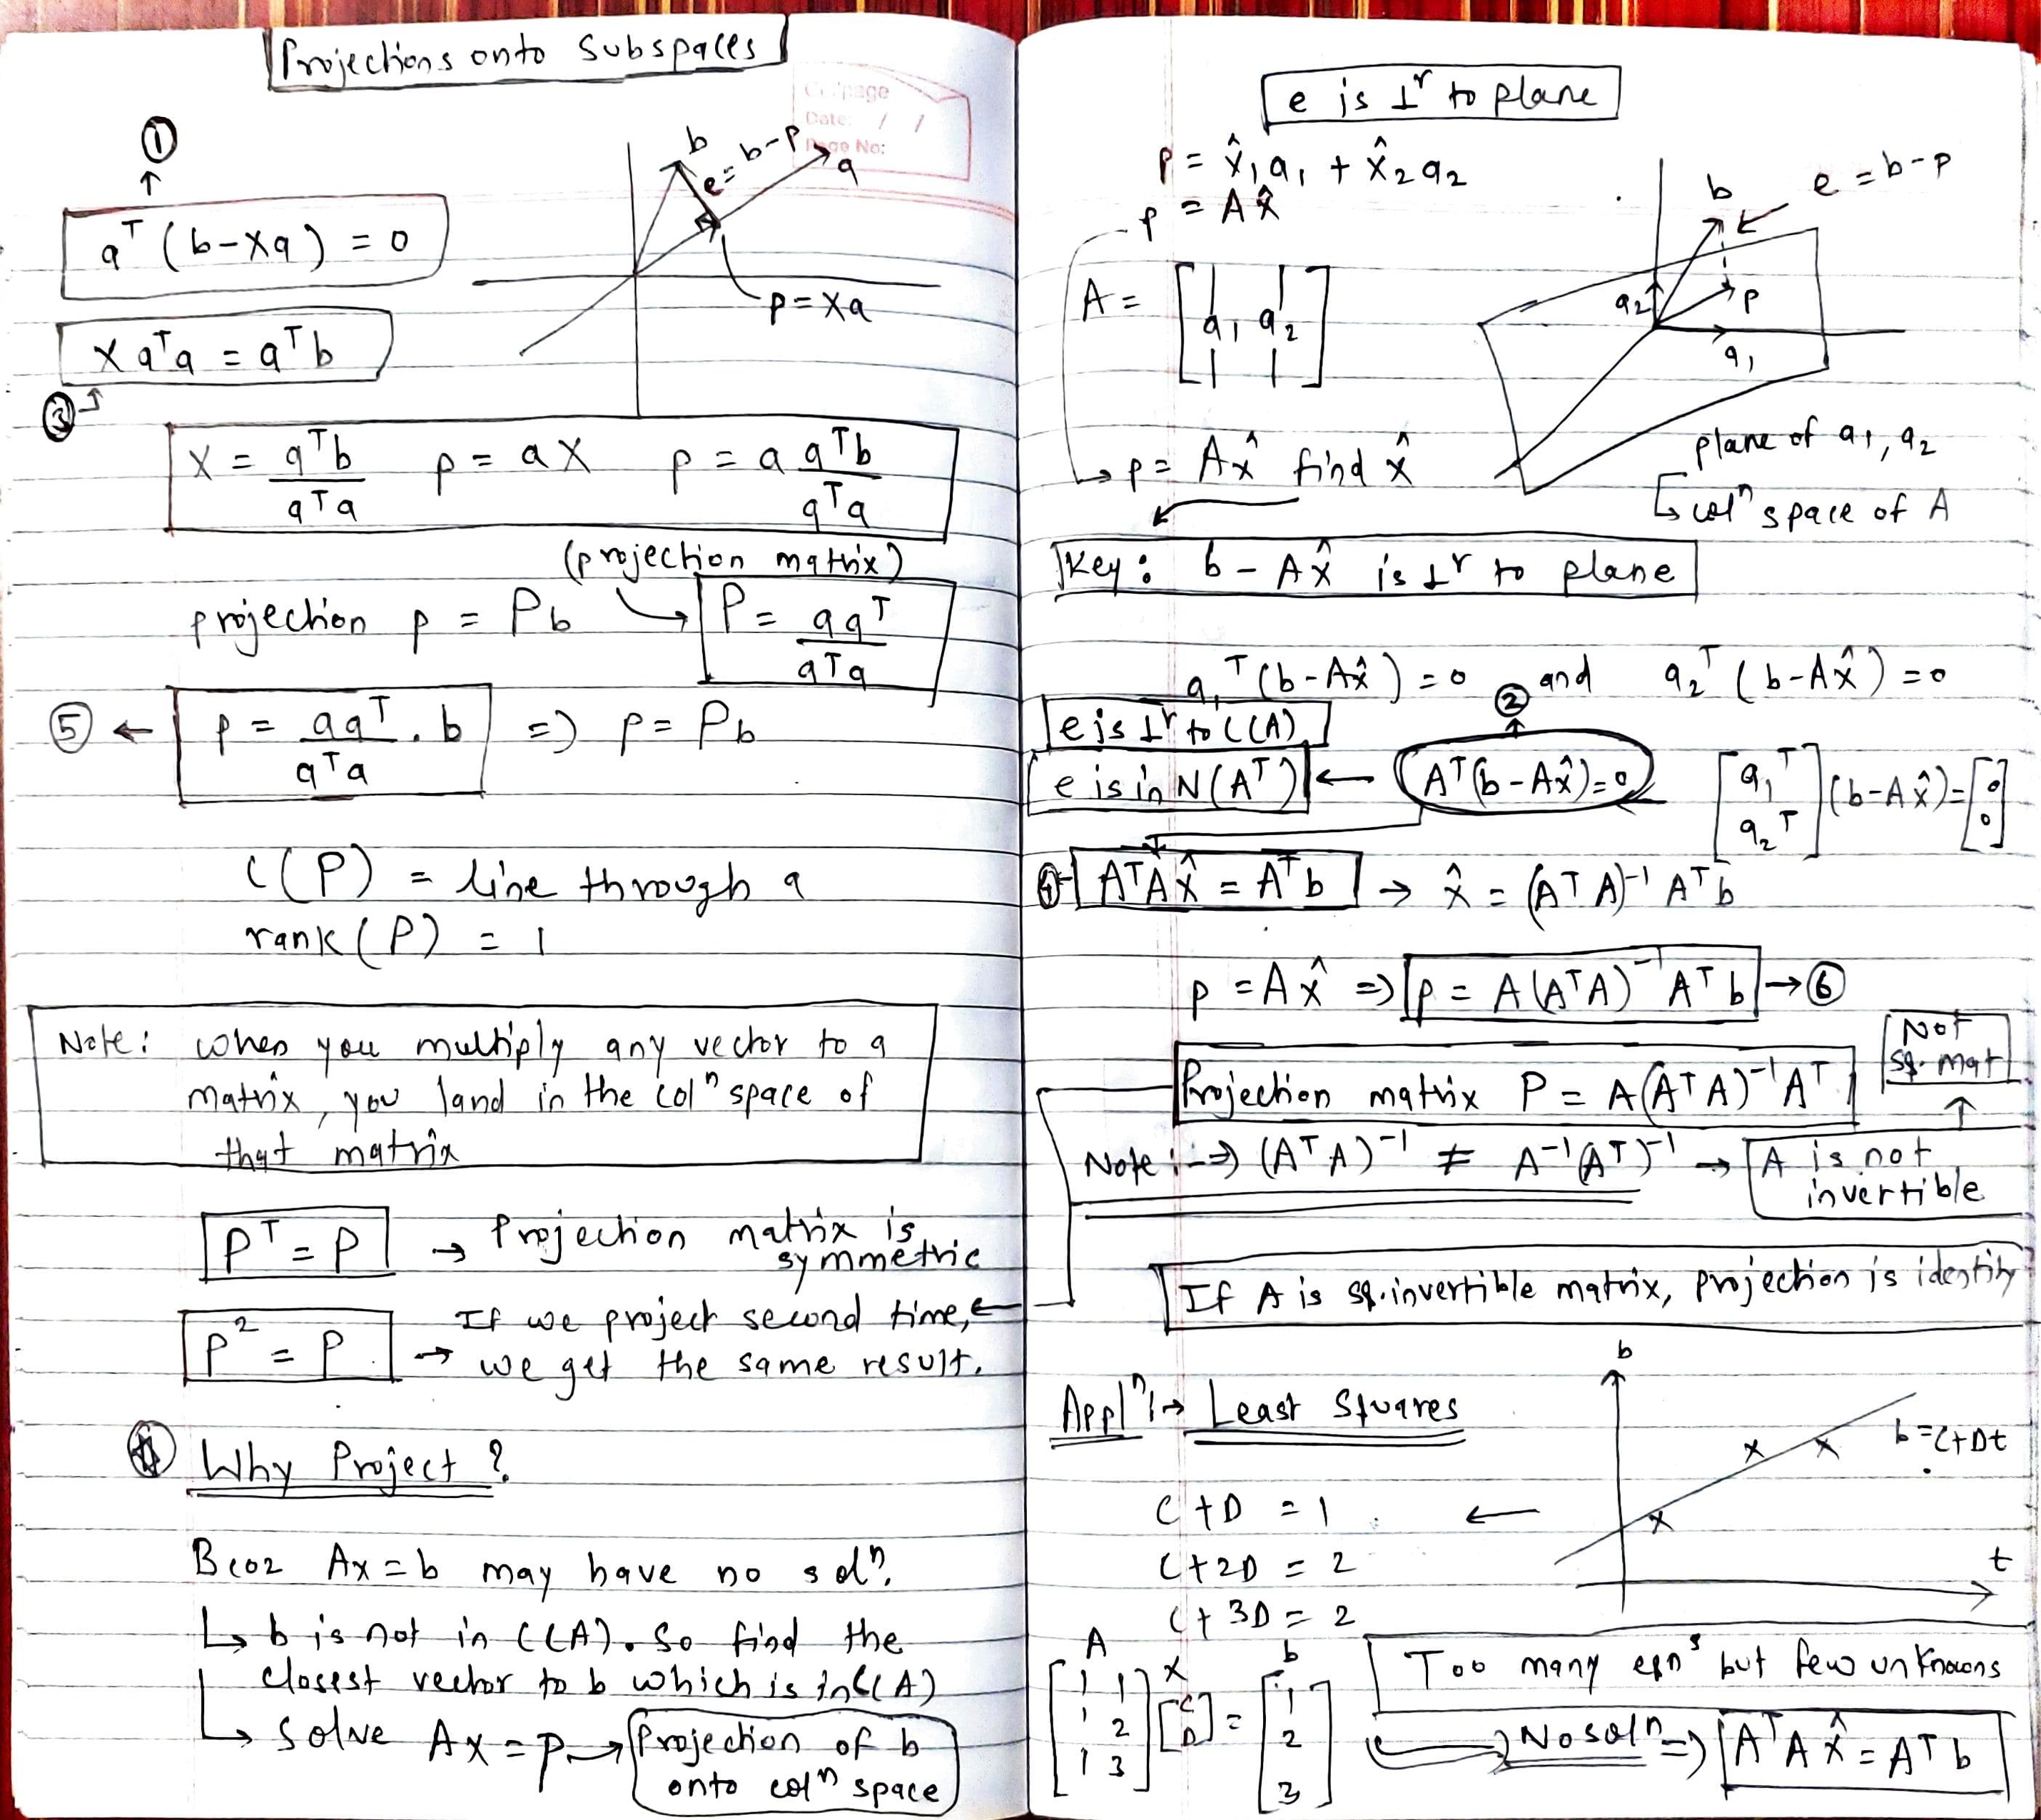 Projections onto Subspaces
Date: / /
Page No:
①
↑
aᵀ(b-xa) = 0
b
e=b-p
a
p=xa
x aᵀa = aᵀb
③
x = aᵀb/aᵀa   p = ax   p = a aᵀb/aᵀa
(projection matrix)
projection p = Pb   P = aaᵀ/aᵀa
⑤ ← p = aaᵀ/aᵀa . b => p = Pb
C(P) = line through a
rank(P) = 1
Note: when you multiply any vector to a
matrix, you land in the colⁿ space of
that matrix
Pᵀ = P → Projection matrix is
symmetric
P² = P → If we project second time, ←
we get the same result.
Why Project ?
Bcoz Ax = b may have no solⁿ.
↳ b is not in C(A). So find the
closest vector to b which is in C(A)
↳ solve Ax = p → Projection of b
onto colⁿ space
e is ⊥ʳ to plane
p = x̂₁a₁ + x̂₂a₂
p = Ax̂
A = [a₁ a₂]
b
e = b-p
a₂
p
a₁
plane of a₁, a₂
↳ colⁿ space of A
→ p = Ax̂ find x̂
Key: b - Ax̂ is ⊥ʳ to plane
a₁ᵀ(b-Ax̂) = 0 and a₂ᵀ(b-Ax̂) = 0
②
e is ⊥ʳ to C(A)
e is in N(Aᵀ) ← Aᵀ(b-Ax̂)=0   [a₁ᵀ a₂ᵀ](b-Ax̂)=[0 0]
④ AᵀAx̂ = Aᵀb → x̂ = (AᵀA)⁻¹Aᵀb
p = Ax̂ => p = A(AᵀA)⁻¹Aᵀb → ⑥
Not
sq. mat
Projection matrix P = A(AᵀA)⁻¹Aᵀ
Note :→ (AᵀA)⁻¹ ≠ A⁻¹(Aᵀ)⁻¹ → A is not
invertible
If A is sq. invertible matrix, projection is identity
Applⁿ :→ Least Squares
b
b = C+Dt
t
C + D = 1 ←
C + 2D = 2
C + 3D = 2
A x b
[1 1
1 2
1 3] [C D] = [1 2 3]
Too many eqnˢ but few unknowns
→ No solⁿ => AᵀAx̂ = Aᵀb